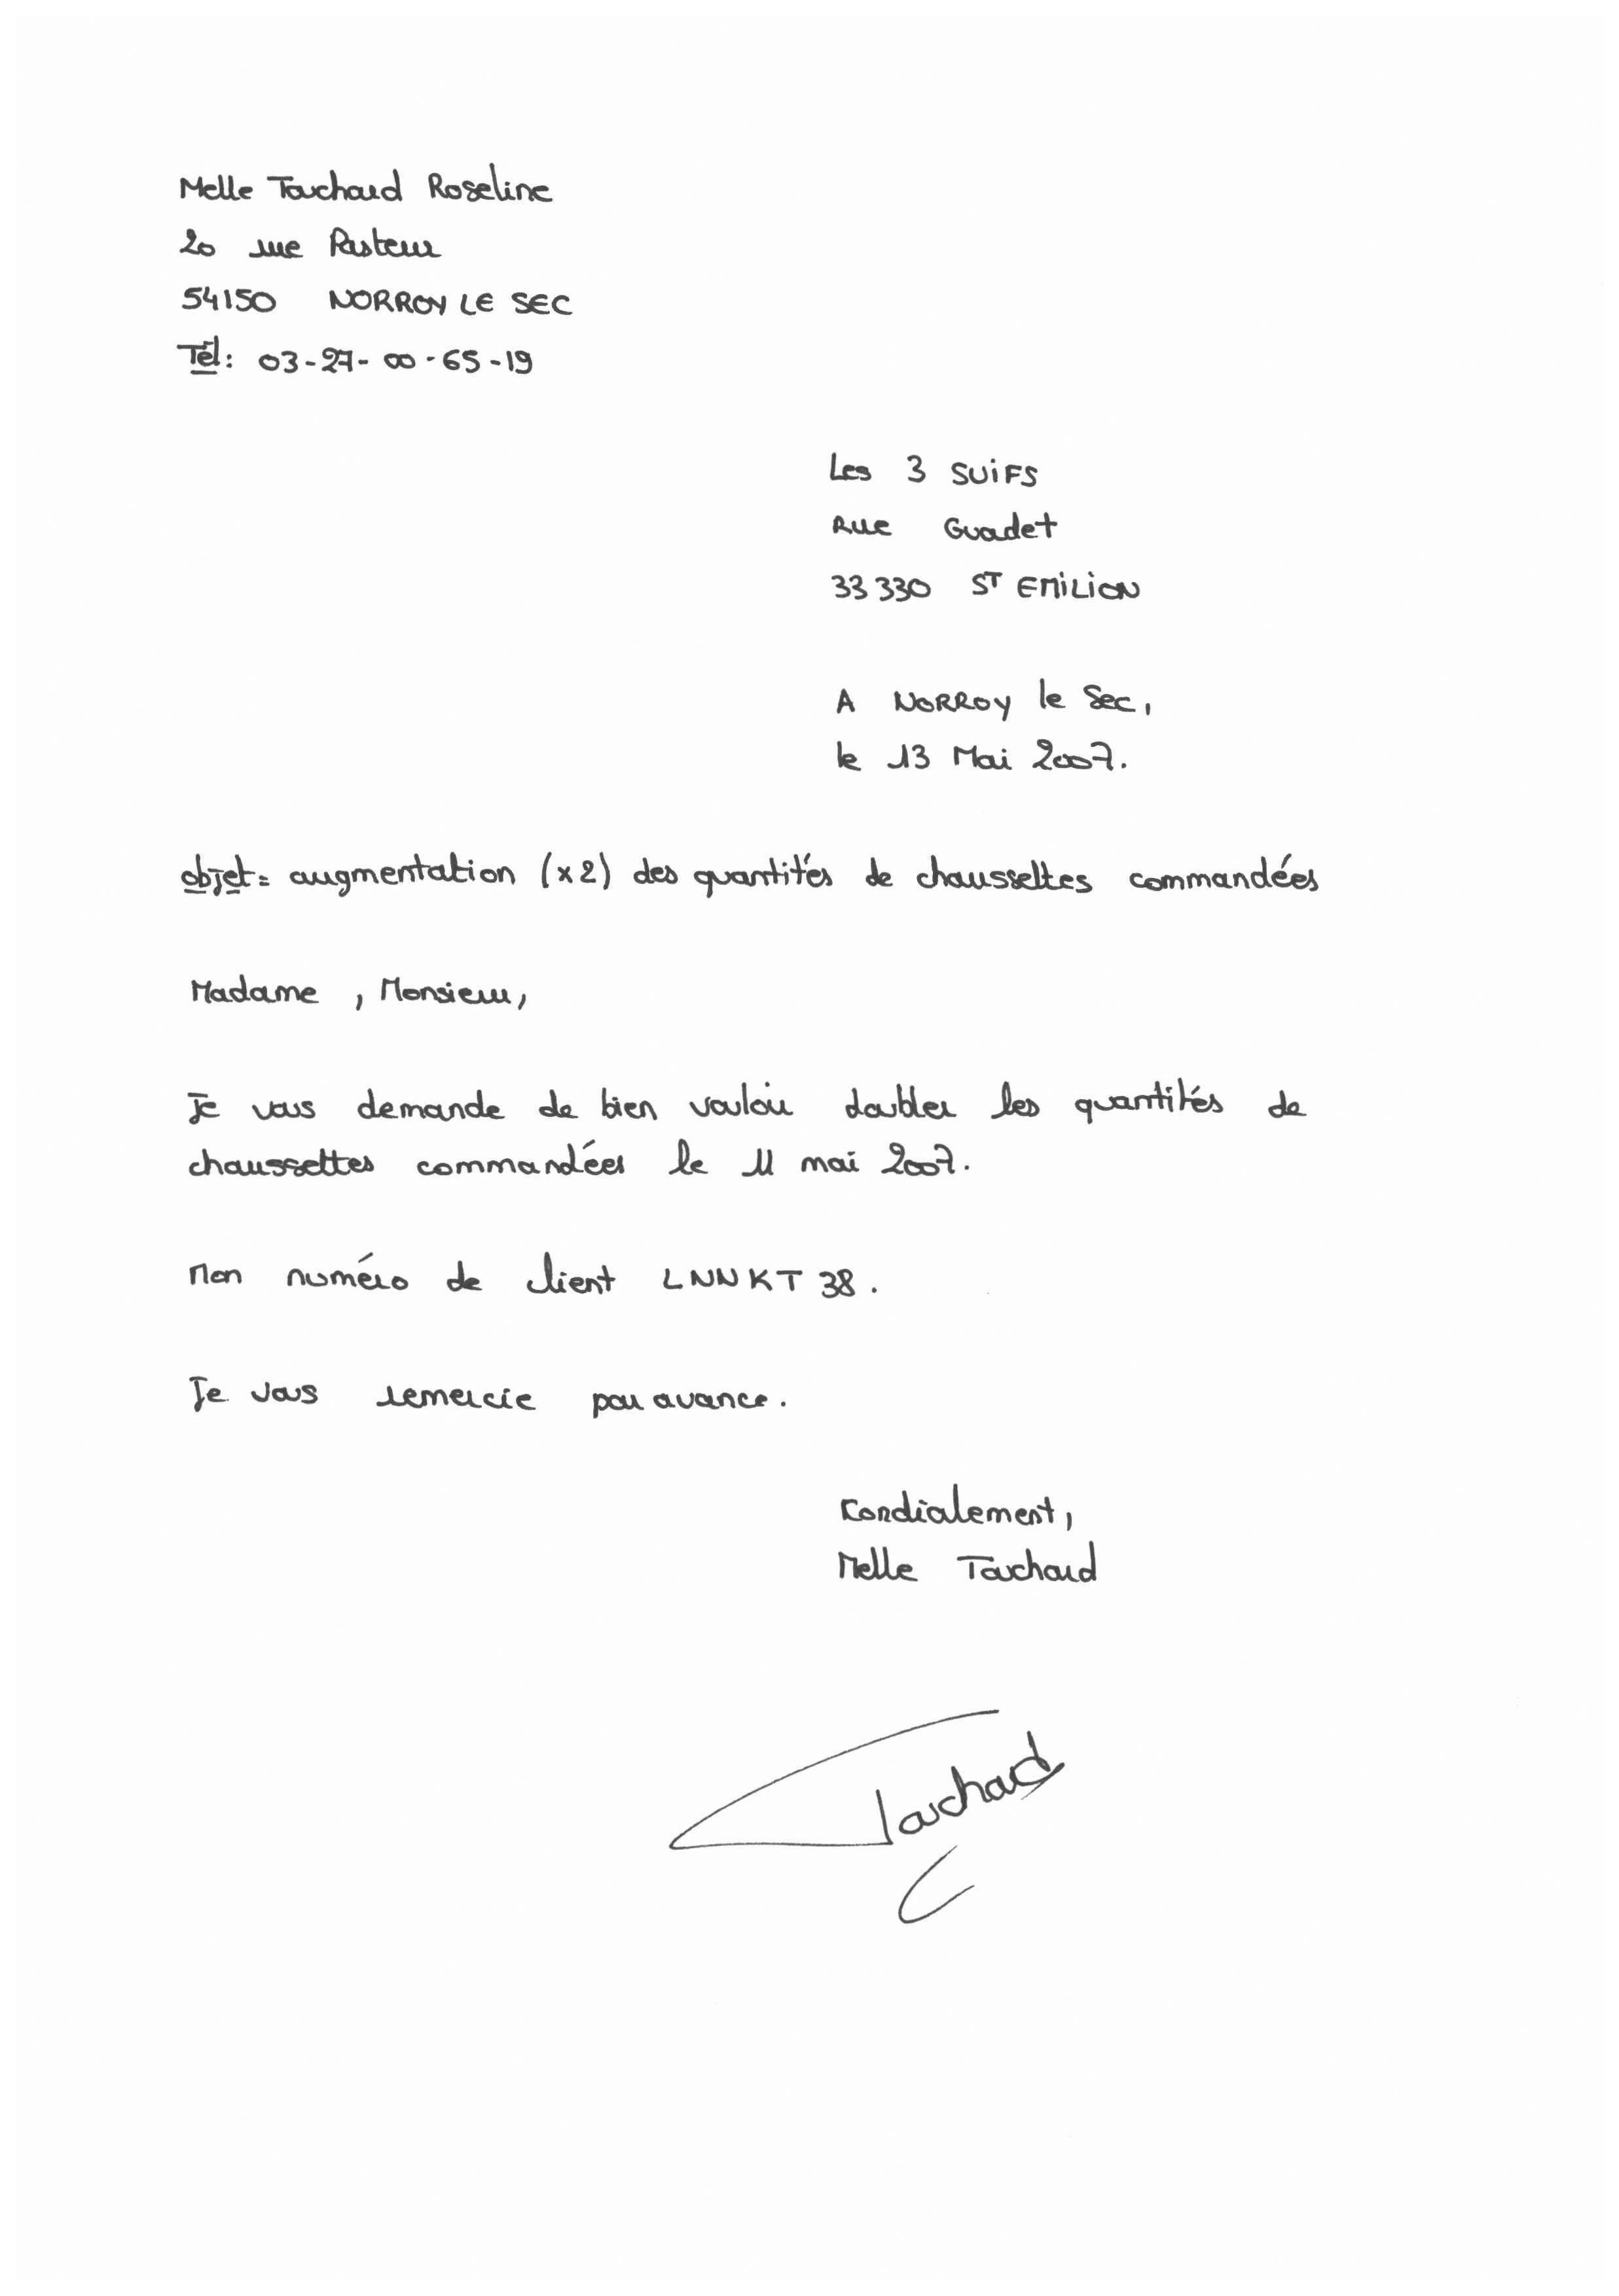 Melle Touchard Roseline
20 rue Pasteur
54150 NORROY LE SEC
Tél: 03-27-00-65-19
Les 3 SUiFS
Rue Guadet
33 330 ST EMILION
A NORROY le Sec,
le 13 Mai 2007.
objet: augmentation (x2) des quantités de chaussettes commandées
Madame , Monsieur,
Je vous demande de bien vouloir doubler les quantités de
chaussettes commandées le 11 mai 2007.
Mon numéro de client LNNKT 38.
Je vous remercie par avance.
Cordialement,
Melle Touchard
Touchard